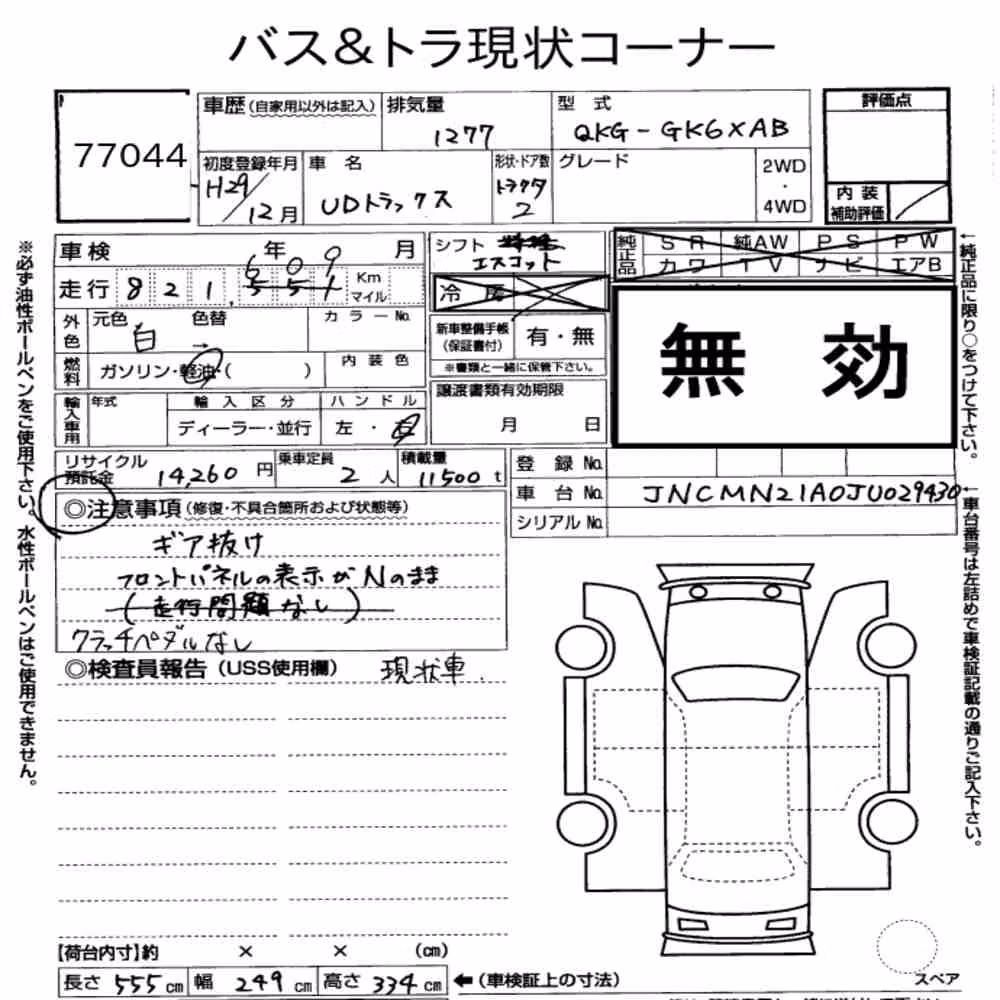 バス&トラ現状コーナー
77044
車歴(自家用以外は記入)
排気量
1277
型 式
QKG-GK6XAB
評価点
初度登録年月
H29/12月
車 名
UDトラックス
形状・ドア数
トラクタ
2
グレード
2WD
・
4WD
内 装
補助評価
車検 年 月
シフト
エスコット
純正品
SR 純AW PS PW
カワ TV ナビ エアB
609
走行 821,551 Km マイル
冷 房
外色
元色 白 → 色替
カラーNo.
新車整備手帳
(保証書付)
有・無
※書類と一緒に保管下さい。
無 効
燃料
ガソリン・軽油・( )
内 装 色
譲渡書類有効期限
月 日
輸入車用
年式
輸 入 区 分
ディーラー・並行
ハ ン ド ル
左・右
リサイクル
預託金
14,260円
乗車定員
2人
積載量
11500t
登 録 No.
車 台 No. JNCMN21A0JU029430
シリアル No.
◎注意事項(修復・不具合箇所および状態等)
ギア抜け
フロントパネルの表示がNのまま
(走行問題なし)
クラッチペダルなし
◎検査員報告(USS使用欄)
現状車.
【荷台内寸】約 × × (cm)
長さ 555cm 幅 249cm 高さ 334cm ←(車検証上の寸法)
スペア
※必ず油性ボールペンをご使用下さい。水性ボールペンはご使用できません。
←純正品に限り○をつけて下さい。
←車台番号は左詰めで車検証記載の通りご記入下さい。